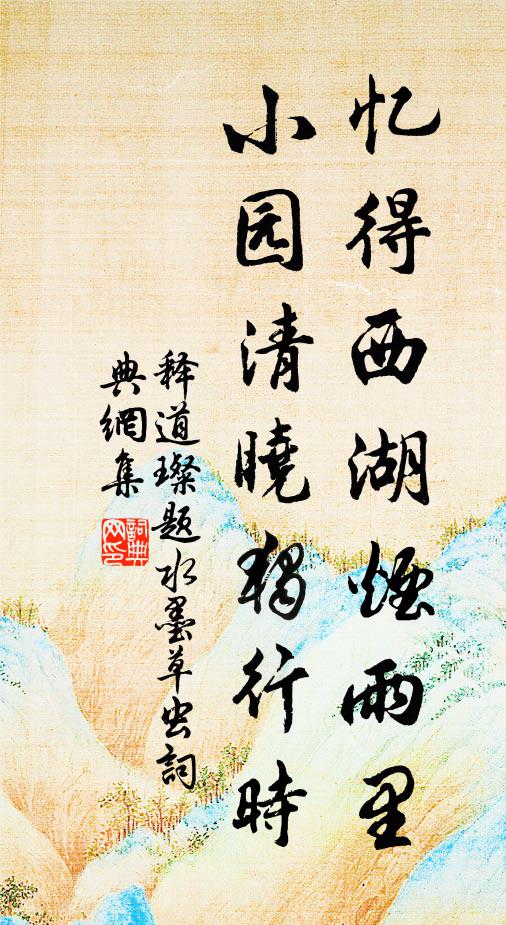 忆得西湖煙雨里
小园清曉独行時
释道璨题水墨草虫詞
典網集
詞典
网印